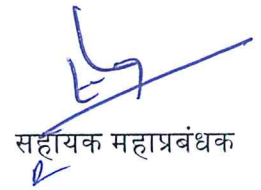 सहायक महाप्रबंधक